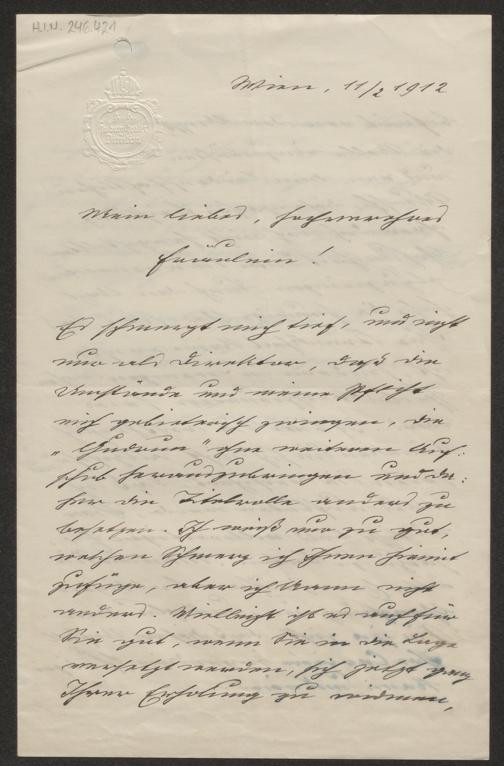 H.I.N. 246.421
Wien, 11/2 1912
Mein liebes, hochverehrtes
Fräulein!
Es schmerzt mich tief, und nicht
nur als Direktor, daß die
Umstände und meine Pflicht
mich gebieterisch zwingen, die
„Gudrun" ohne weiteren Auf-
schub herauszubringen und da-
her die Titelrolle anders zu
besetzen. Ich weiß nur zu gut,
welchen Schmerz ich Ihnen hiemit
zufüge, aber ich kann nicht
anders. Vielleicht ist es auch für
Sie gut, wenn Sie in die Lage
versetzt werden, sich jetzt ganz
Ihrer Erholung zu widmen,